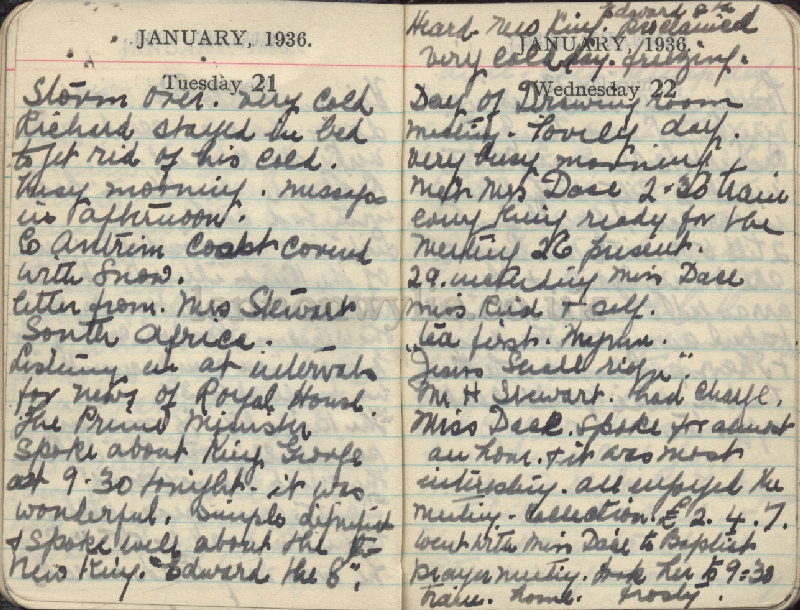 JANUARY, 1936.
Tuesday 21
Storm over. Very cold
Richard stayed in bed
to get rid of his cold.
busy morning. messages
in afternoon.
Co Antrim Coast covered
with snow.
letter from. Mrs Stewart
South Africa.
Listening in at intervals
for news of Royal House.
The Prime Minister
spoke about King George
at 9.30 tonight. it was
wonderful. simple dignified
& spoke well about the
New King. "Edward the 8".
Heard New King. Edward 8th proclaimed
very cold day. freezing.
JANUARY, 1936.
Wednesday 22
Day of Drawing Room
meeting. lovely day.
very busy morning
met Mrs Dase 2-30 train
everything ready for the
meeting 26 present.
29. including Miss Dase
Miss Reid & self.
tea first. Hymn.
"Jesus Shall reign".
Mr H Stewart. had charge.
Miss Dase. spoke for almost
an hour. & it was most
interesting. all enjoyed the
meeting. collection. £2.4.7.
went with Miss Dase to Baptist
prayer meeting. took her to 9:30
train. home. frosty.